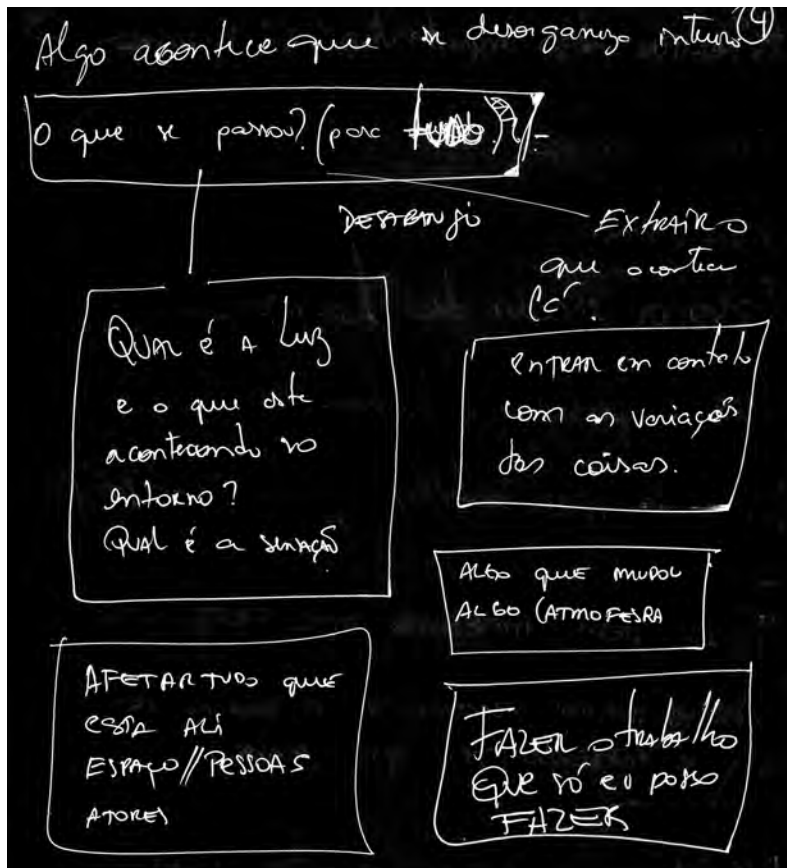 Algo acontece que se desorganiza inteiro 4
O que se passou? (para
DESARRANJO
EXTRAIR O
que acontece
lá.
QUAL é A Luz
e o que está
acontecendo no
entorno?
QUAL é a sensação
ENTRAR em contato
com as variações
das coisas.
ALGO QUE MUDOU
ALGO (ATMOFESRA
AFETAR TUDO QUE
ESTÁ ALI
ESPAÇO//PESSOAS
ATORES
FAZER o trabalho
QUE só eu posso
FAZER